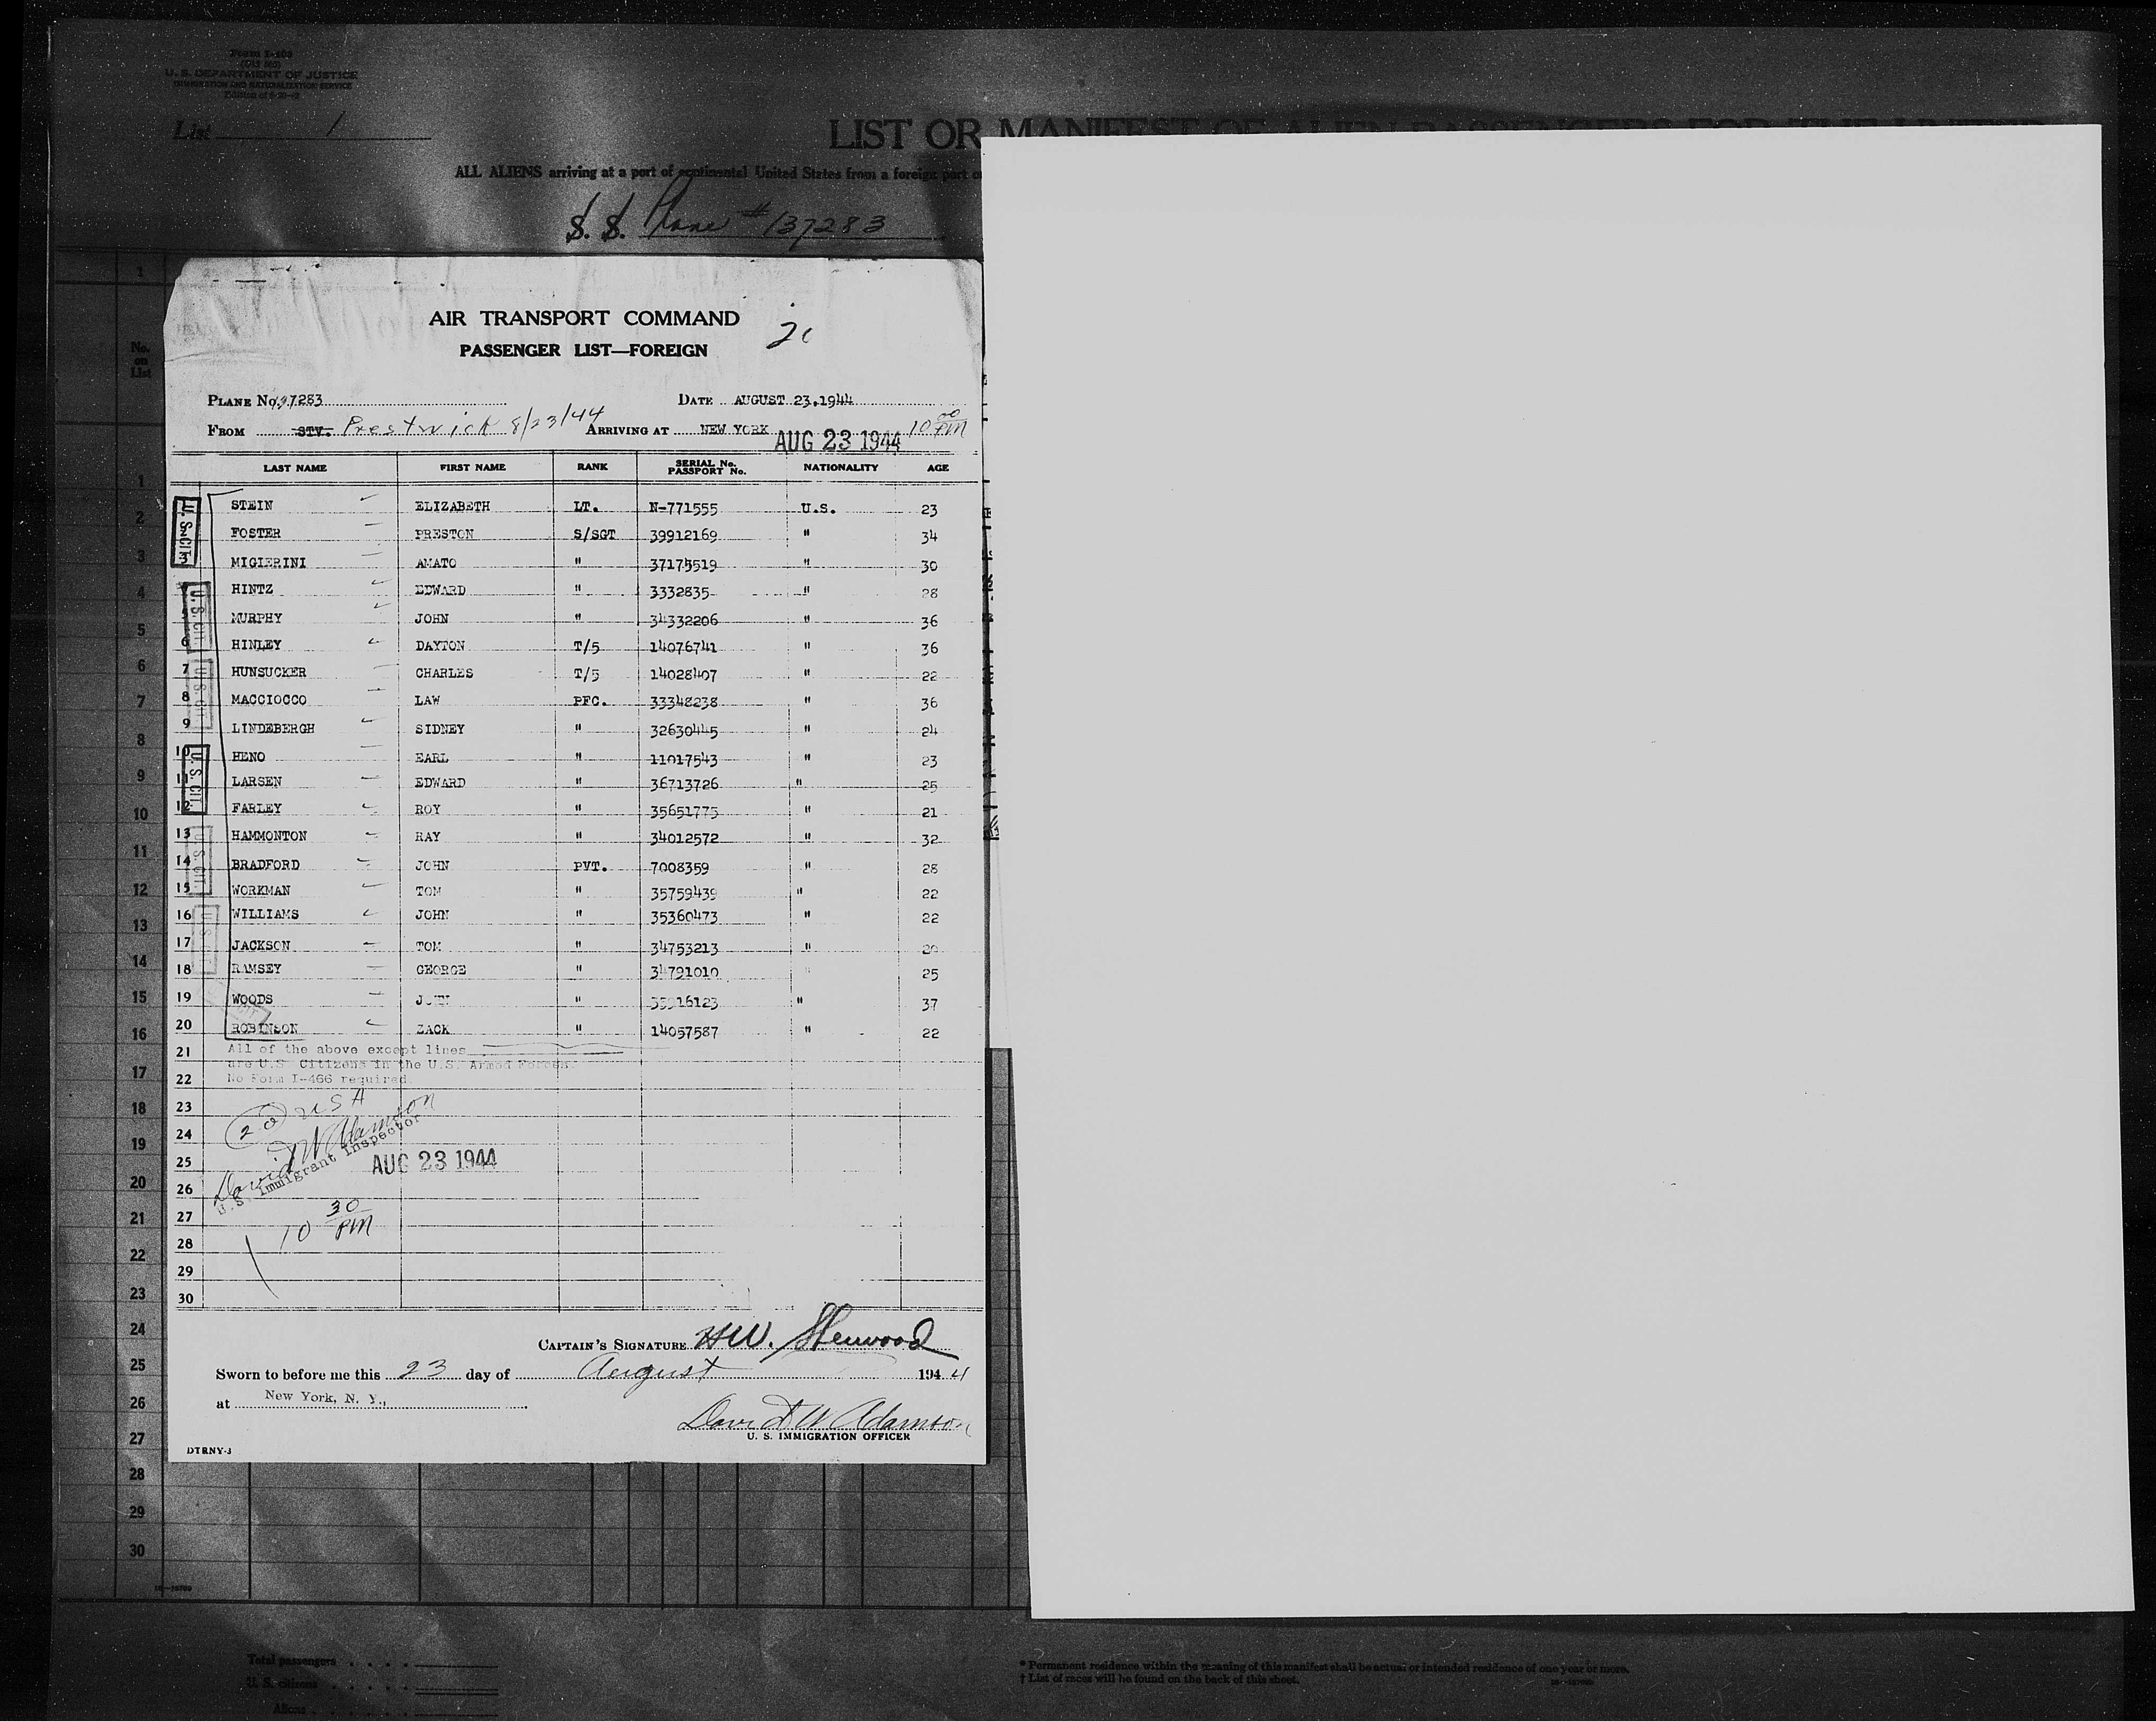 U. S. DEPARTMENT OF JUSTICE
IMMIGRATION AND NATURALIZATION SERVICE
List 1
LIST OR MANIFEST OF ALIEN PASSENGERS FOR THE UNITED
ALL ALIENS arriving at a port of continental United States from a foreign port o
S. S. Plane # 137283
No. on List
AIR TRANSPORT COMMAND
20
PASSENGER LIST—FOREIGN
PLANE No. 137283 DATE AUGUST 23,1944
FROM STV. Prestwick 8/23/44 ARRIVING AT NEW YORK AUG 23 1944 10 00 PM
LAST NAME FIRST NAME RANK SERIAL No. PASSPORT No. NATIONALITY AGE
STEIN ELIZABETH LT. N-771555 U.S. 23
FOSTER PRESTON S/SGT 39912169 " 34
MIGIERINI AMATO " 37175519 " 30
HINTZ EDWARD " 3332835 " 28
MURPHY JOHN " 34332206 " 36
6 HINLEY DAYTON T/5 14076741 " 36
7 HUNSUCKER CHARLES T/5 14028407 " 22
8 MACCIOCCO LAW PFC. 33348238 " 36
9 LINDEBERGH SIDNEY " 32630445 " 24
10 HENO EARL " 11017543 " 23
11 LARSEN EDWARD " 36713726 " 25
12 FARLEY ROY " 35651775 " 21
13 HAMMONTON RAY " 34012572 " 32
14 BRADFORD JOHN PVT. 7008359 " 28
15 WORKMAN TOM " 35759439 " 22
16 WILLIAMS JOHN " 35360473 " 22
17 JACKSON TOM " 34753213 " 20
18 RAMSEY GEORGE " 34791010 " 25
19 WOODS " " 37
20 ROBINSON ZACK " 14057587 " 22
U. S. CIT.
21 All of the above except lines
are U.S. Citizens in the U.S. Armed Forces.
22 No Form I-466 required
23 20 USA
24
25 David W Adamson
U.S. Immigrant Inspector
AUG 23 1944
26
27 10 30 PM
28
29
30
CAPTAIN'S SIGNATURE H W. Sherwood
Sworn to before me this 23 day of August 1944
at New York, N. Y.,
David W Adamson
U. S. IMMIGRATION OFFICER
DTRNY-3
1
2
3
4
5
6
7
8
9
10
11
12
13
14
15
16
17
18
19
20
21
22
23
24
25
26
27
28
29
30
Total passengers
U. S. citizens
Aliens
* Permanent residence within the meaning of this manifest shall be actual or intended residence of one year or more.
† List of races will be found on the back of this sheet.